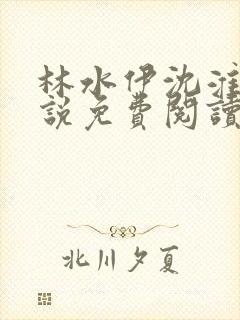 林水伊沈淮
說免費閱讀
北川夕夏